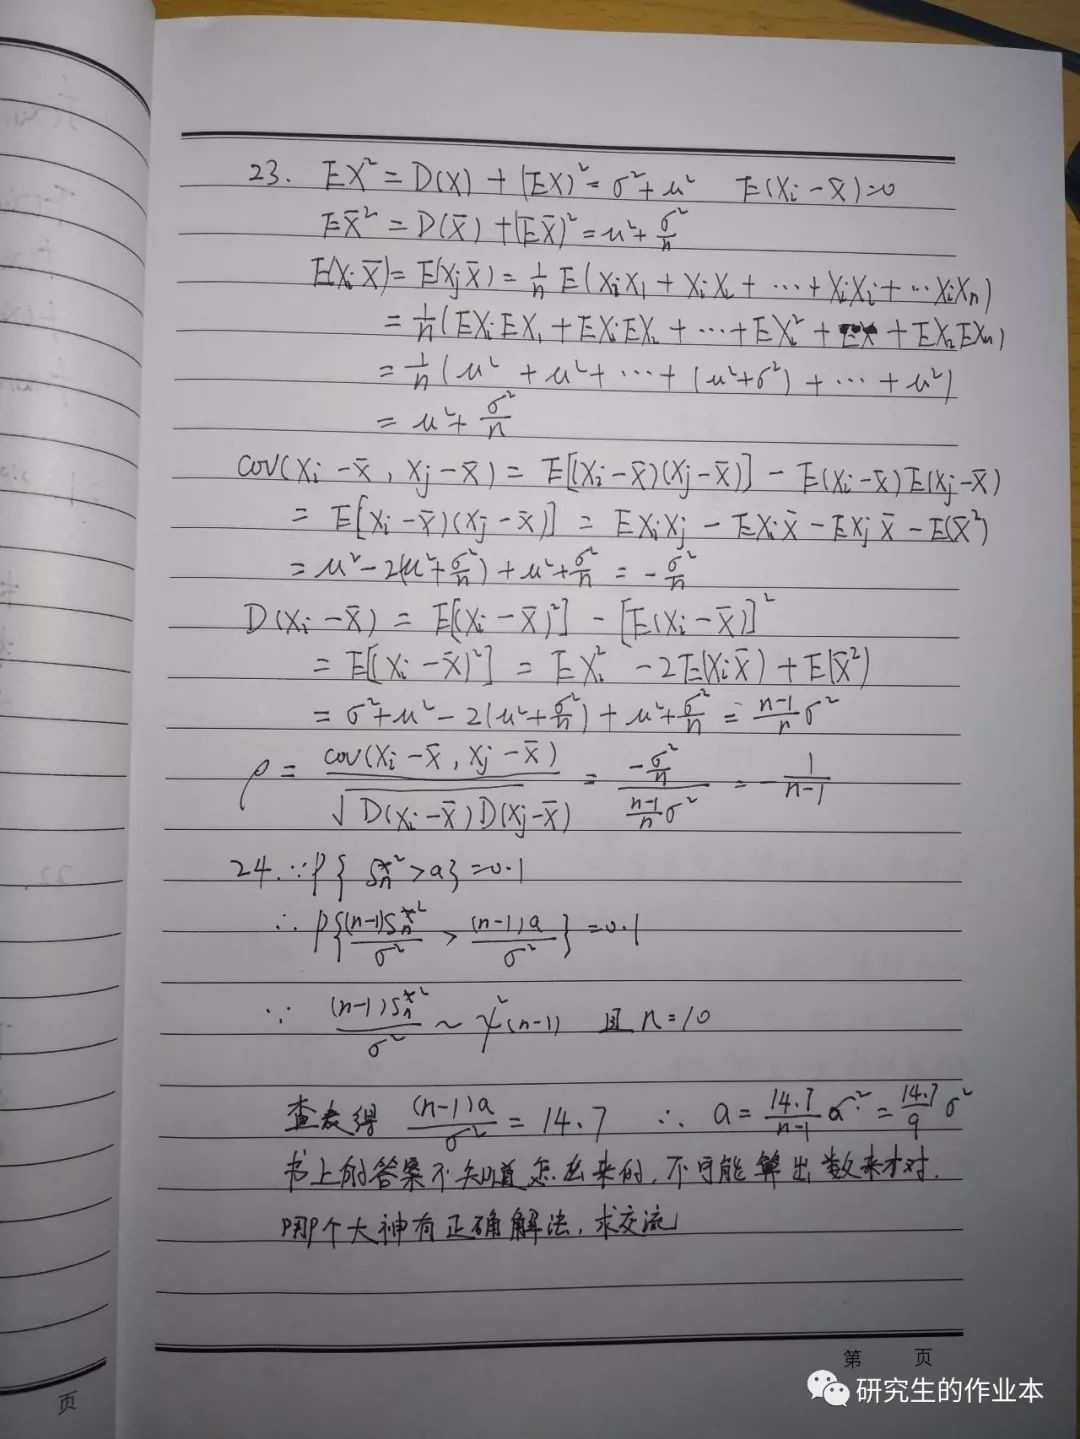 23. EX² = D(X) + (EX)² = σ² + μ²  E(Xi − X̄) = 0
EX̄² = D(X̄) + (EX̄)² = μ² + σ²/n
E(Xi X̄) = E(Xj X̄) = 1/n E(XiX1 + XiX2 + ··· + XiXi + ··· XiXn)
= 1/n (EXiEX1 + EXiEX2 + ··· + EXi² + + EXiEXn)
= 1/n (μ² + μ² + ··· + (μ² + σ²) + ··· + μ²)
= μ² + σ²/n
cov(Xi − X̄, Xj − X̄) = E[(Xi − X̄)(Xj − X̄)] − E(Xi − X̄)E(Xj − X̄)
= E[Xi − X̄)(Xj − X̄)] = EXiXj − EXiX̄ − EXjX̄ − E(X̄²)
= μ² − 2(μ² + σ²/n) + μ² + σ²/n = −σ²/n
D(Xi − X̄) = E[(Xi − X̄)²] − [E(Xi − X̄)]²
= E[(Xi − X̄)²] = EXi² − 2E(XiX̄) + E(X̄²)
= σ² + μ² − 2(μ² + σ²/n) + μ² + σ²/n = (n−1)/n σ²
ρ = cov(Xi − X̄, Xj − X̄) / √D(Xi − X̄)D(Xj − X̄) = (−σ²/n) / ((n−1)/n σ²) = −1/(n−1)
24. ∵ P{Sn*² > a} = 0.1
∴ P{(n−1)Sn*²/σ² > (n−1)a/σ²} = 0.1
∵ (n−1)Sn*²/σ² ~ χ²(n−1) 且 n=10
查表得 (n−1)a/σ² = 14.7 ∴ a = 14.7/(n−1) σ² = 14.7/9 σ²
书上的答案不知道怎么来的,不可能算出数来才对.
哪个大神有正确解法,求交流
第 页
页
研究生的作业本